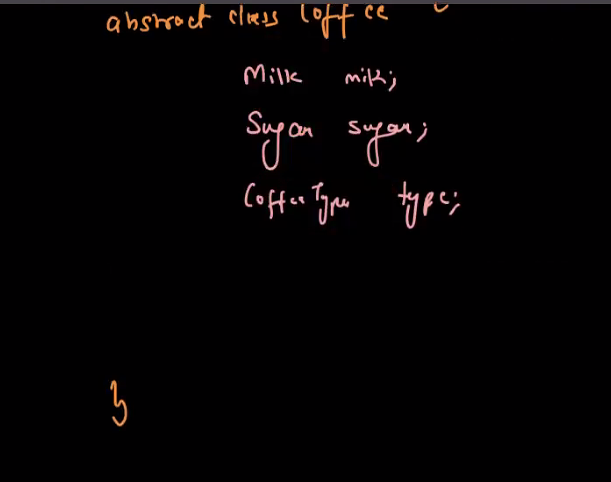 abstract class Coffee {
Milk milk;
Sugar sugar;
CoffeeType type;
}